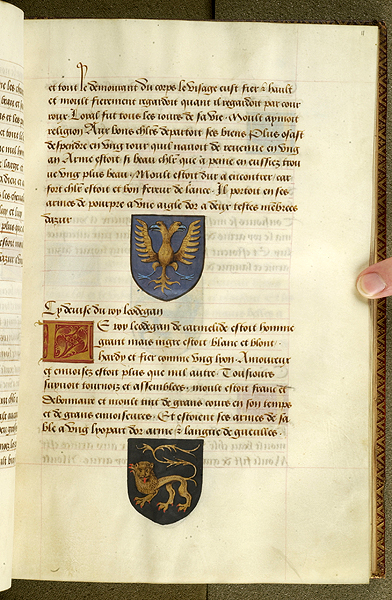 et tout le demourant du corps le visage eust fier & hault
et moult fierement regardoit quant il regardoit par cour
roux Loyal fut tous les iours de sa vie Moult aymoit
religion Aux bons chlrs departoit ses biens Plus osast
despendre en vng iour quil nauoit de reuenu en vng
an Arme estoit si beau chlr que a peine en eussiez trou
ue vng plus beau Moult estoit dur a encontrer car
fort chlr estoit et bon fereur de lance Il portoit en ses
armes de pourpre a vne aigle dor a deux testes mēbrees
dazur
Cy deuise du roy leodegan
LE roy leodegan de carmelide estoit homme
grant mais maigre estoit blanc et blont
hardy et fier comme vng lyon Amoureux
et enuoisez estoit plus que nul autre Tousiours
suyuoit tournoiz et assemblees moult estoit franc et
debonnaire et moult tint de grans cours en son temps
et de grans enuoiseures Et estoient ses armes de sa
ble a vng lyopart dor arme & langue de gueulles